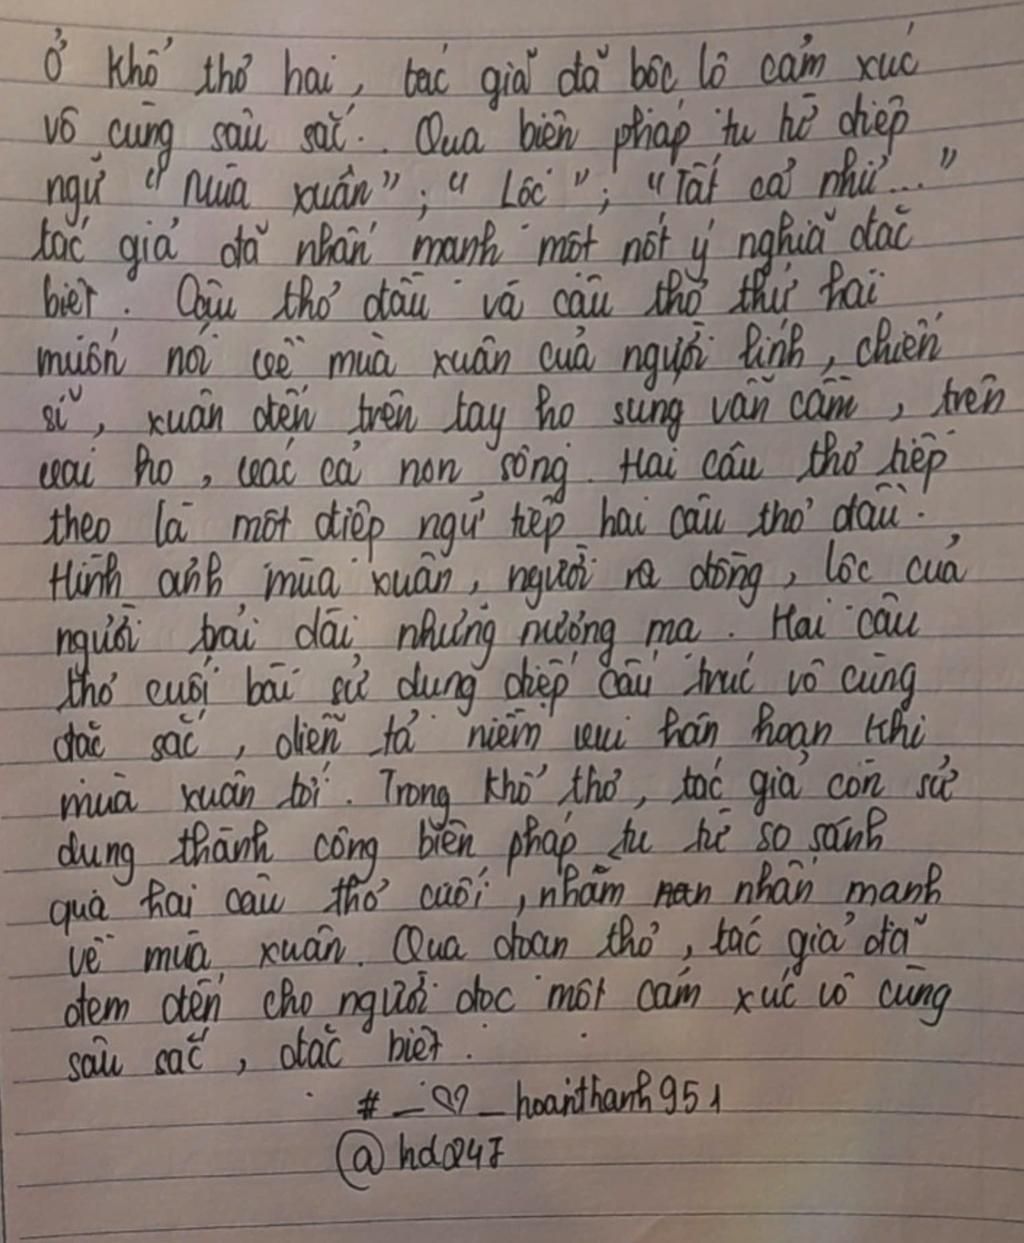 Ở khổ thơ hai, tác giả đã bộc lộ cảm xúc
vô cùng sâu sắc. Qua biện pháp tu từ điệp
ngữ "Mùa xuân"; "Lộc"; "Tất cả như..."
tác giả đã nhấn mạnh một nốt ý nghĩa đặc
biệt. Câu thơ đầu và câu thơ thứ hai
muốn nói về mùa xuân của người lính, chiến
sĩ, xuân đến trên tay họ súng vẫn cầm, trên
vai họ, vác cả non sông. Hai câu thơ tiếp
theo là một điệp ngữ tiếp hai câu thơ đầu.
Hình ảnh mùa xuân, người ra đồng, lộc của
người trải dài những nương mạ. Hai câu
thơ cuối bài sử dụng điệp cấu trúc vô cùng
đặc sắc, diễn tả niềm vui hân hoan khi
mùa xuân tới. Trong khổ thơ, tác giả còn sử
dụng thành công biện pháp tu từ so sánh
qua hai câu thơ cuối, nhằm nhấn mạnh
về mùa xuân. Qua đoạn thơ, tác giả đã
đem đến cho người đọc một cảm xúc vô cùng
sâu sắc, đặc biệt.
#_♡_hoanthanh951
@hdo247